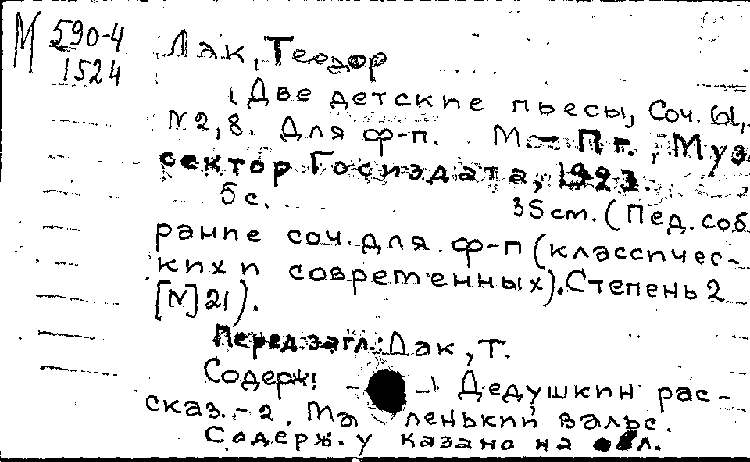 М 590-4
1524
Лак, Теодор
Две детские пьесы, Соч. 61,
N 2, 8. Для ф-п. М.-Пг., Муз.
сектор Госиздата, 1923.
5 с. 35 cm. (Пед. соб
рание соч. для ф-п (классичес-
ких и современных). Степень 2
[N] 21).
Перед загл.: Лак, Т.
Содерж: -1 Дедушкин рас-
сказ. - 2. Маленький вальс.
Содерж. указано на обл.